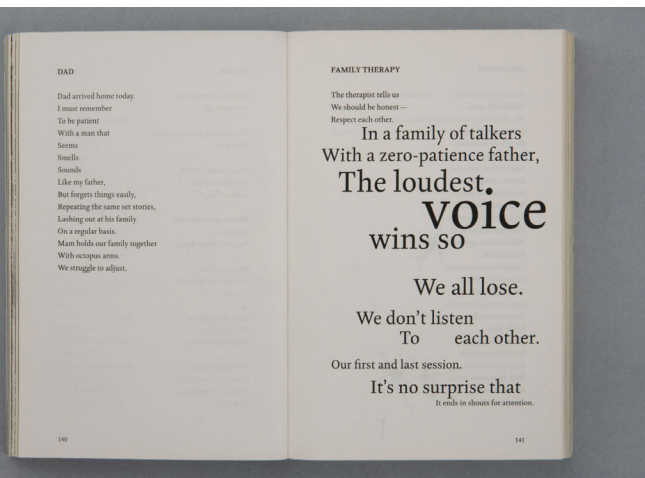 DAD
Dad arrived home today.
I must remember
To be patient
With a man that
Seems
Smells
Sounds
Like my father,
But forgets things easily,
Repeating the same set stories,
Lashing out at his family
On a regular basis.
Mam holds our family together
With octopus arms.
We struggle to adjust.
140
FAMILY THERAPY
The therapist tells us
We should be honest —
Respect each other.
In a family of talkers
With a zero-patience father,
The loudest
voice
wins so
We all lose.
We don't listen
To each other.
Our first and last session.
It's no surprise that
It ends in shouts for attention.
141